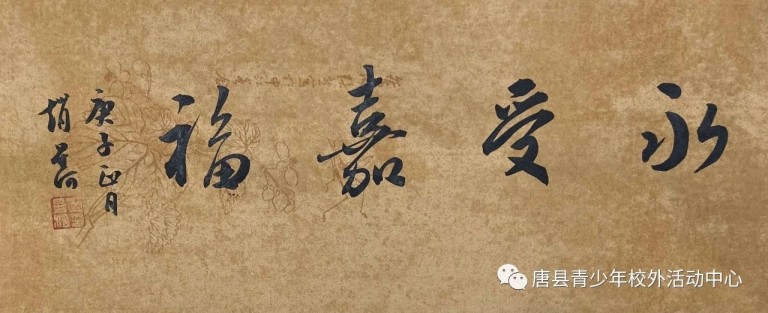 永受嘉福
庚子正月
唐县青少年校外活动中心